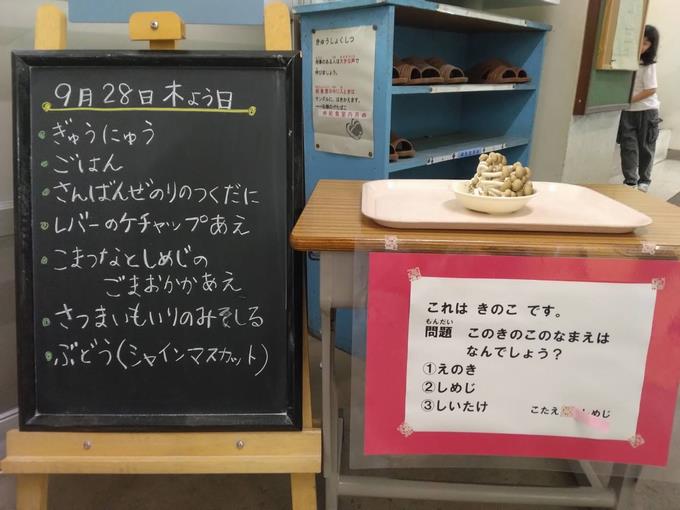 9月28日 木よう日
ぎゅうにゅう
ごはん
さんばんぜのりのつくだに
レバーのケチャップあえ
こまつなとしめじの
ごまおかかあえ
さつまいもいりのみそしる
ぶどう(シャインマスカット)
きゅうしょくしつ
これは きのこ です。
もんだい
問題 このきのこのなまえは
なんでしょう?
①えのき
②しめじ
③しいたけ
こたえ しめじ